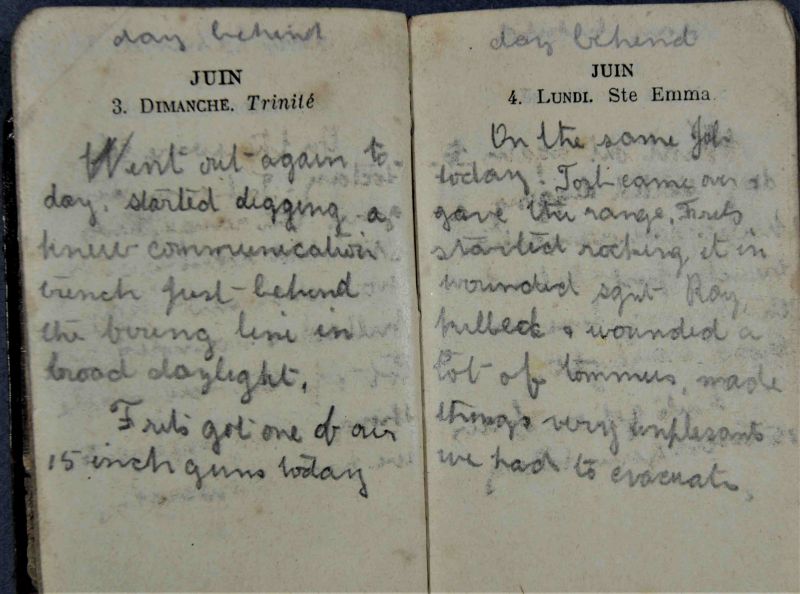 day behind
JUIN
3. DIMANCHE. Trinité
Went out again to
day, started digging a
knew communication
trench just behind
the bireng line in
broad daylight,
Frits got one of our
15 inch guns today
day behind
JUIN
4. LUNDI. Ste Emma.
On the same job
today! came over &
gave the range, Frits
started rocking it in
wounded sgnt Ray,
killed & wounded a
lot of tommies, made
things very unplesant
we had to evacuate,